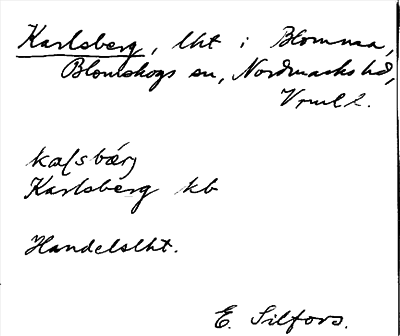 Karlsberg, lht i Blomma,
Blomskogs sn, Nordmarks hd,
Vrml l.
Karlsberg kb
Handelslht.
E. Silfors.